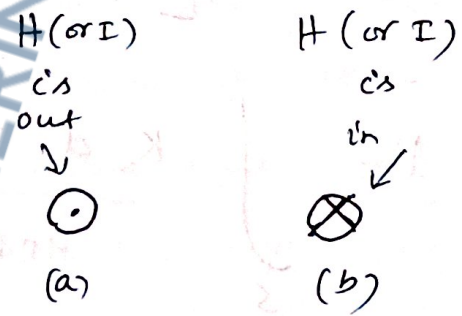 H (or I)
is
out
(a)
H (or I)
is
in
(b)